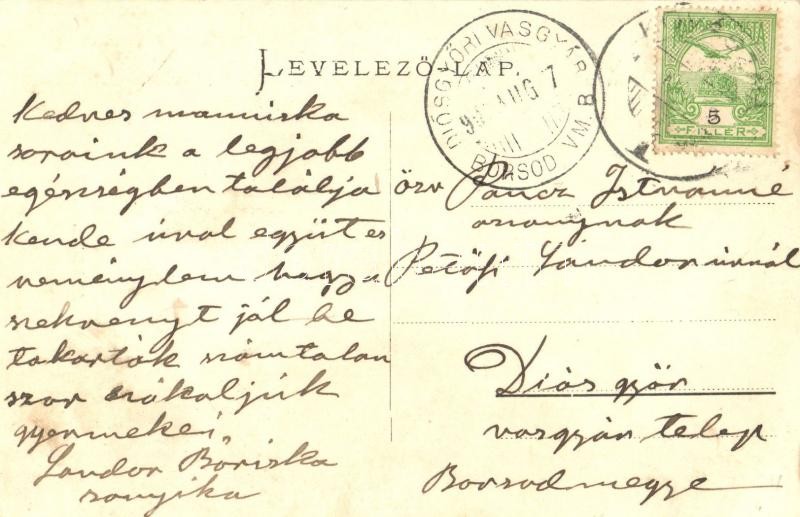 LEVELEZŐ-LAP.
DIÓSGYŐRI VASGYÁR
AUG 7
BORSOD VM. B
MAGYAR KIR. POSTA
5
FILLÉR
Kedves mamuska
soraink a legjobb
egésségben találja
Kende úral együt es
reményllem hogy a
szekvenyt jól be
takarták számtalan
szor csókoljúk
gyermekei
Sandor Böriska
özv Páncz Istvanné
aszonynak
Petőfi Sándor úrnál
Diós győr
vasgyár telep
Borsodmegye